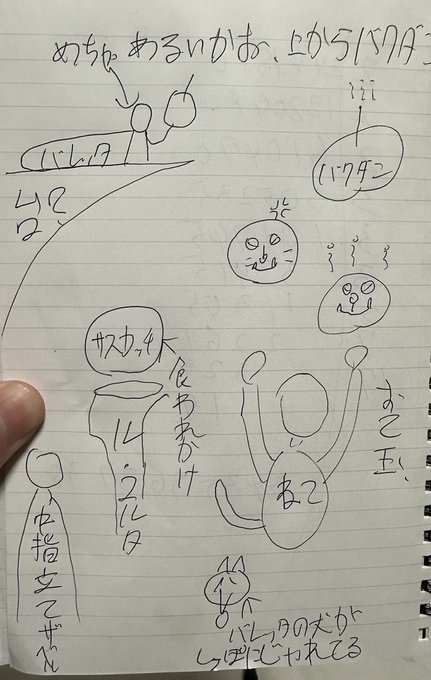 めちゃ あるいかお、上からバクダン
バレッタ
バクダン
サスカッチ
食われかけ
14.2ルタ
ねこ
おて玉!
中指立てザル
バレッタの犬が
しっぽにじゃれてる